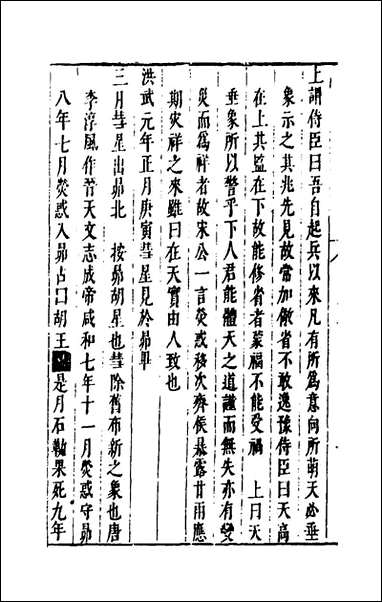 上謂侍臣曰吾自起兵以來凡有所爲意向所萌天必垂
象示之其兆先見故常加儆省不敢逸豫侍臣曰天高
在上其監在下故能修省者蒙福不能受禍　上曰天
垂象所以警乎下人君能體天之道謹而無失亦有變
災而爲祥者故宋公一言熒或移次齊侯暴露甘雨應
期災祥之來雖曰在天實由人致也
洪武元年正月庚寅彗星見於昴畢
三月彗星出昴北　按昴胡星也彗除舊布新之象也唐
李淳風作晉天文志成帝咸和七年十一月熒惑守昴
八年七月熒惑入昴占曰胡王是月石勒果死九年